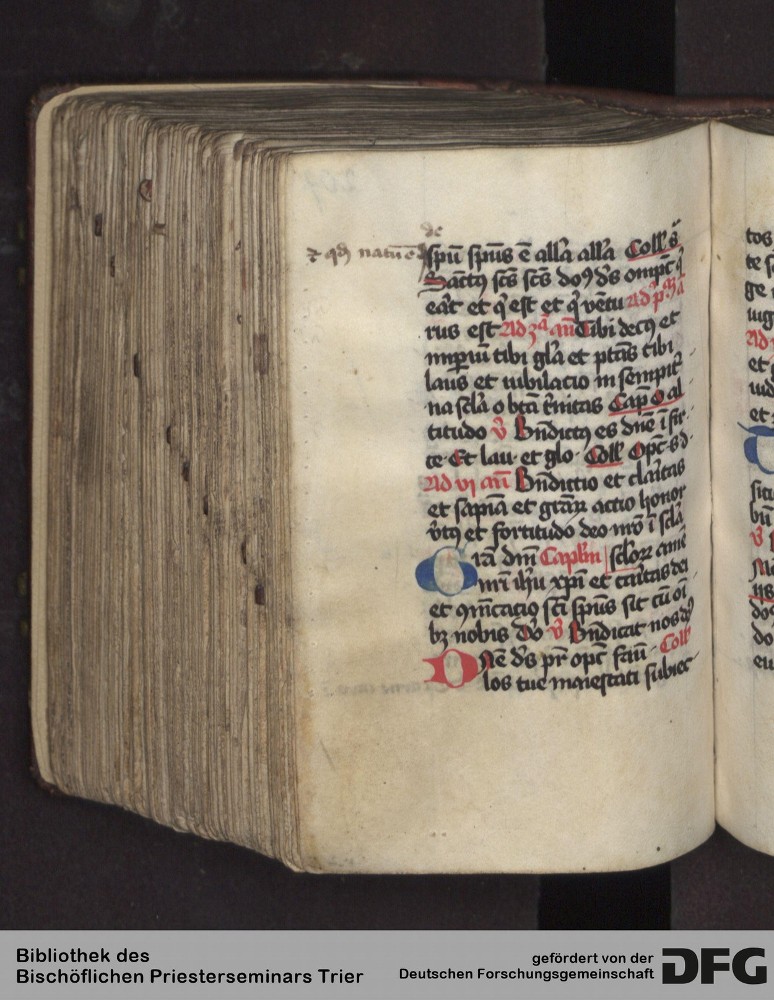 de
⁊ qd natū ē
spū spūs ē all'a all'a Coll' s̄
Sāctꝰ scs scs doꝰ ds ompt̄ q̄
eāt et q̄ est et q̄ vētu Ad p
rus est Ad 3ᵃ an̄ Tibi decꝰ et
impiū tibi gl'a et ptās tibi
laus et iubilacio in sempit̄
na scl'a o btā t̄nitas Cap O al
titudo v̄ Bn̄dictꝰ es dn̄e ī fir
te · Et lau · et glo · Coll' Opt̄ s d
Ad vi an̄ Bn̄dictio et clāitas
et sapīa et grāꝝ actio honor
v̄tꝰ et fortitudo deo nr̄o ī scl'a
scl'oꝝ amē
Grā dn̄i Capl'm
nr̄i ihu xp̄i et cāitas dei
et ꝯmīcacio sc̄i spūs sit cū oī
bꝫ nobis v̄ Bn̄dicat nos dꝰ
One ds pr̄ opt̄ famu Coll'
los tue maiestati subiec
tos
te s
ge
iug
Ad
et
et
v̄
do
do
eu
Bibliothek des
Bischöflichen Priesterseminars Trier
gefördert von der
Deutschen Forschungsgemeinschaft
DFG